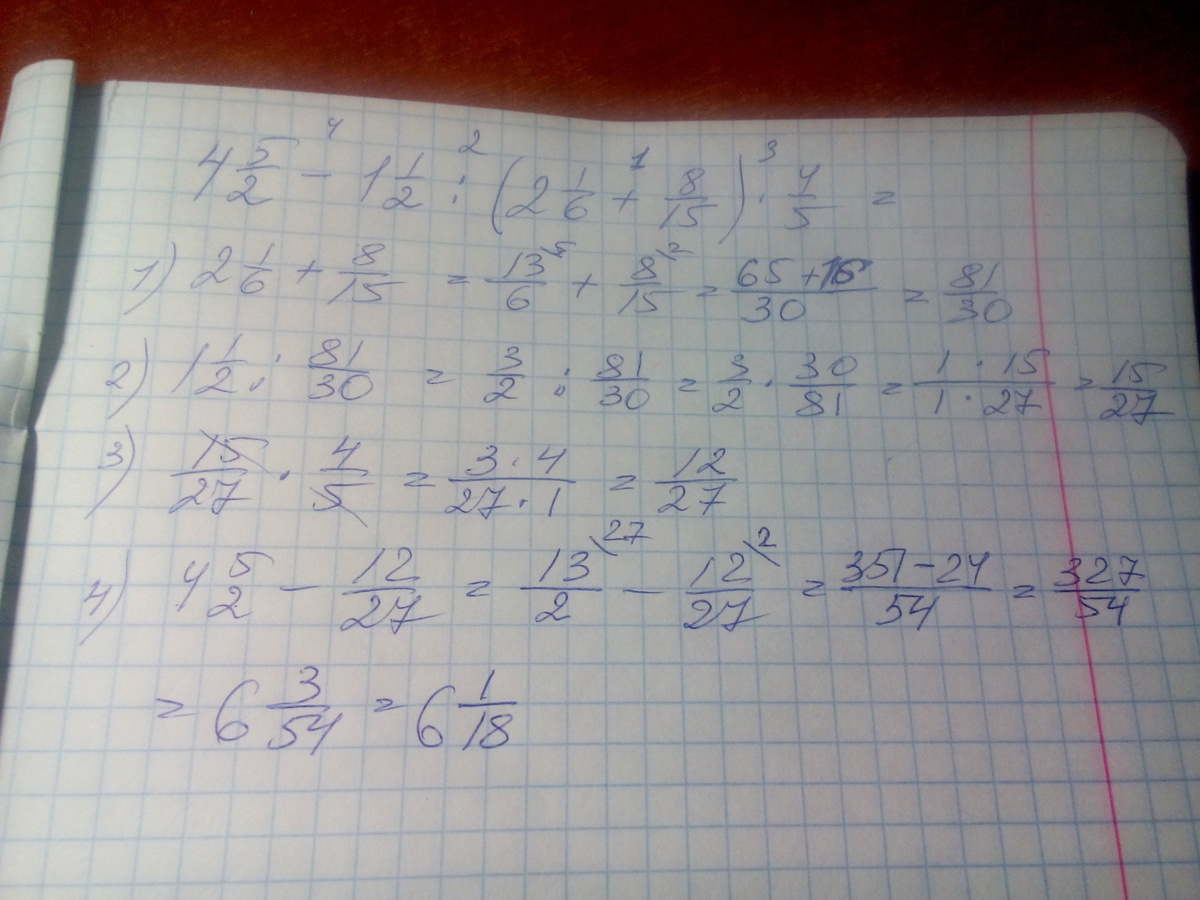 4 5/2 - ⁴ 1 1/2 : ² (2 1/6 + ¹ 8/15) · ³ 4/5 =
1) 2 1/6 + 8/15 = 13\⁵/6 + 8\²/15 = (65+16)/30 = 81/30
2) 1 1/2 : 81/30 = 3/2 : 81/30 = 3/2 · 30/81 = (1 · 15)/(1 · 27) = 15/27
3) 15/27 · 4/5 = (3 · 4)/(27 · 1) = 12/27
4) 4 5/2 - 12/27 = 13\²⁷/2 - 12\²/27 = (351-24)/54 = 327/54
= 6 3/54 = 6 1/18